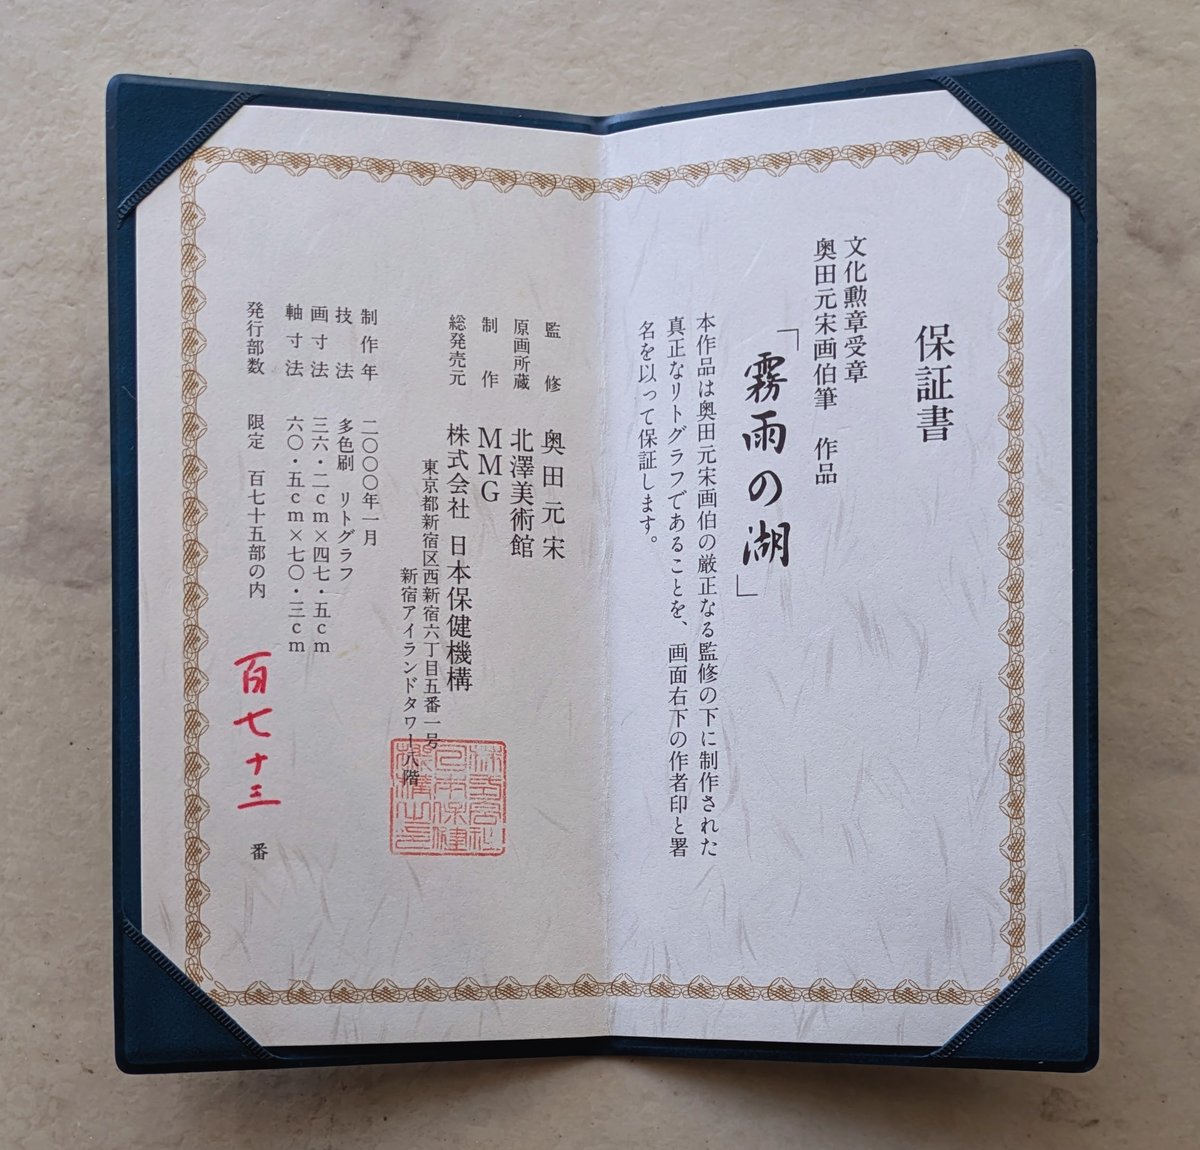 保証書
文化勲章受章
奥田元宋画伯筆 作品
「霧雨の湖」
本作品は奥田元宋画伯の厳正なる監修の下に制作された
真正なリトグラフであることを、画面右下の作者印と署
名を以って保証します。
監修 奥田元宋
原画所蔵 北澤美術館
制作 MMG
総発売元 株式会社 日本保健機構
東京都新宿区西新宿六丁目五番一号
新宿アイランドタワー八階
株式会社
日本保健
機構之印
制作年 二〇〇〇年一月
技法 多色刷 リトグラフ
画寸法 三六・二cm×四七・五cm
軸寸法 六〇・五cm×七〇・三cm
発行部数 限定 百七十五部の内 百七十三 番